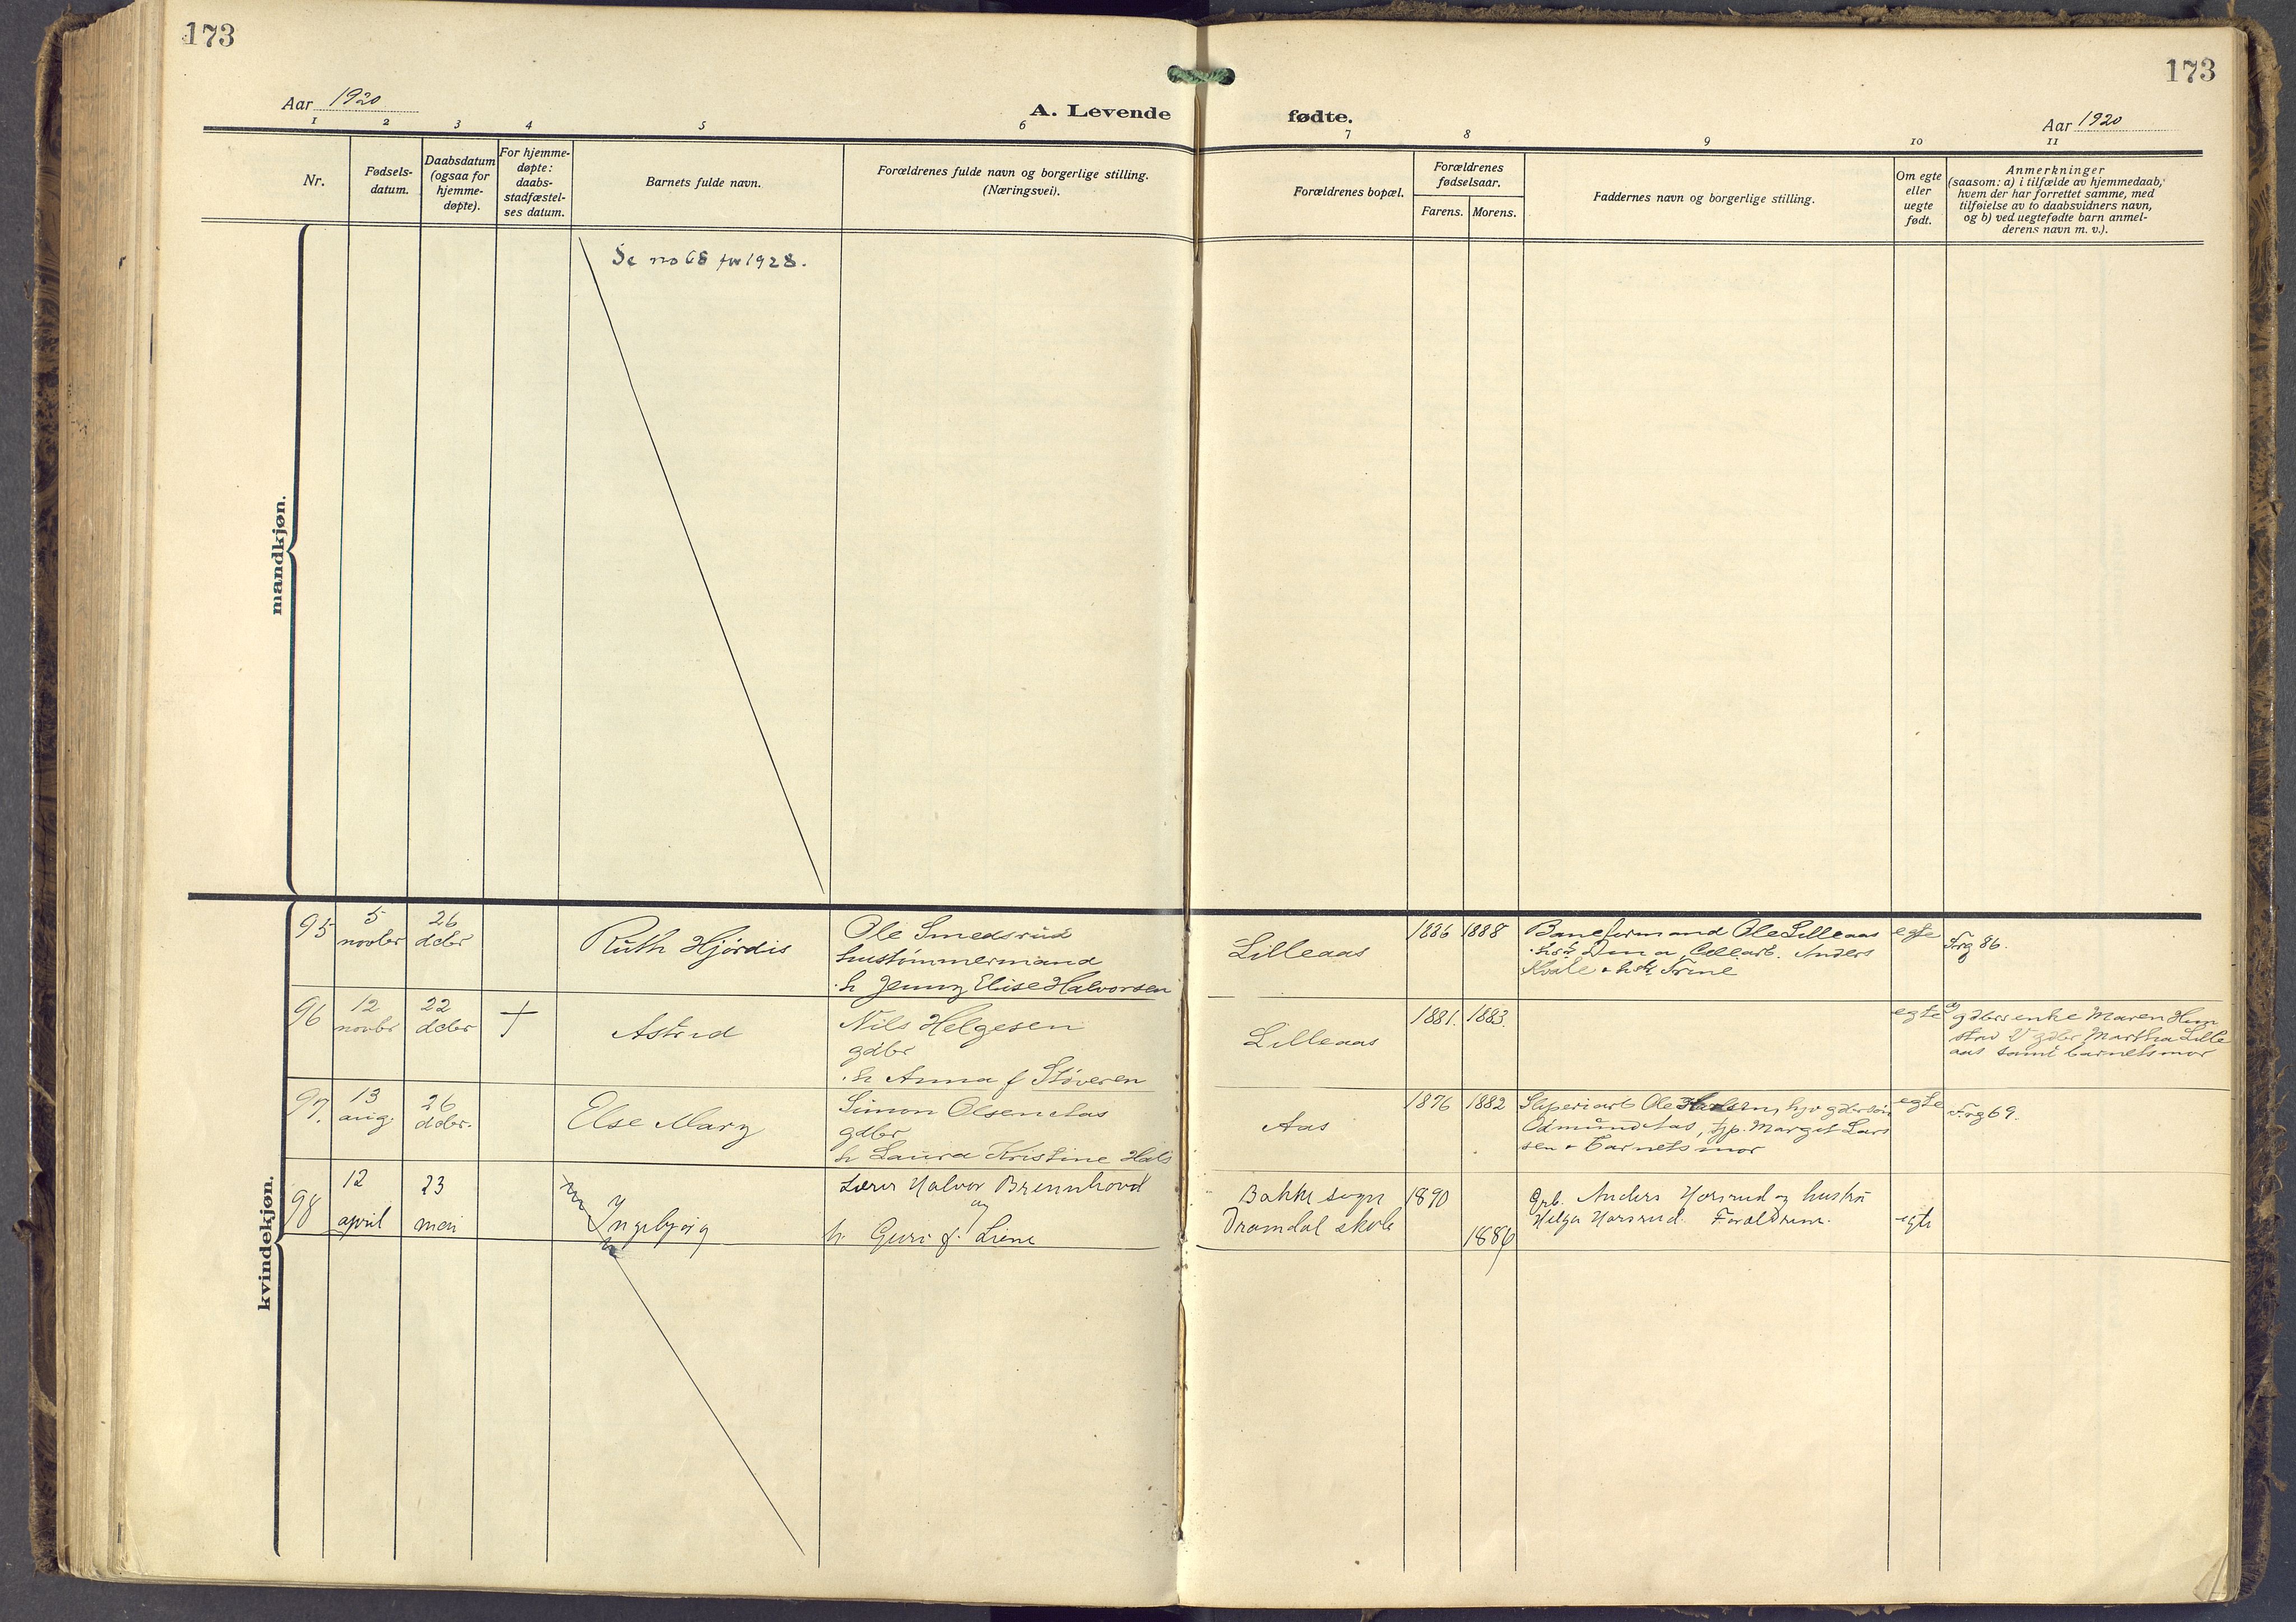 173
173
Aar 1920
A. Levende fødte.
Aar 1920
1 2 3 4 5 6 7 8 9 10 11
Nr.
Fødsels-
datum.
Daabsdatum
(ogsaa for
hjemme-
døpte).
For hjemme-
døpte:
daabs-
stadfæstel-
ses datum.
Barnets fulde navn.
Forældrenes fulde navn og borgerlige stilling.
(Næringsvei).
Forældrenes bopæl.
Forældrenes
fødselsaar.
Farens. Morens.
Faddernes navn og borgerlige stilling.
Om egte
eller
uegte
født.
Anmerkninger
(saasom: a) i tilfælde av hjemmedaab,
hvem der har forrettet samme, med
tilføielse av to daabsvidners navn,
og b) ved uegtefødte barn anmel-
derens navn m. v.).
mandkjøn.
Se no 68 for 1928.
kvindekjøn.
95
5
novbr
26
dcbr
Ruth Hjørdis
Ole Smedsrud
hustømmermand
h Jenny Elise Halvorsen
Lilleaas
1886 1888
Baneformand Ole Lilleaas
Anders
Kvale & hstr Trine
egte
Frg 86.
96
12
novbr
22
dcbr
+
Astrid
Nils Helgesen
gdbr
h Anna f Støveren
Lilleaas
1881. 1883.
egte
gdbrs enke Maren Hun
stad & gdbr Martha Lille
aas samt barnets mor
97.
13
aug.
26
dcbr.
Else Mary
Simon Olsen Aas
gdbr
h Laura Kristine Hals
Aas
1876 1882
Sliperiarb Ole gdbrsøn
Edmund Aas, tjp. Margit Lars
sen & barnets mor
egte
Frg 69.
98
12
april
23
mai
Ingebjørg
Lærer Halvor Brennhovd
og
h. Guri f. Liene
Bakke sogn
Dramdal skole
1890
1886
Grb. Anders Horsrud og hustru
Helga Horsrud. Forældrene.
egte